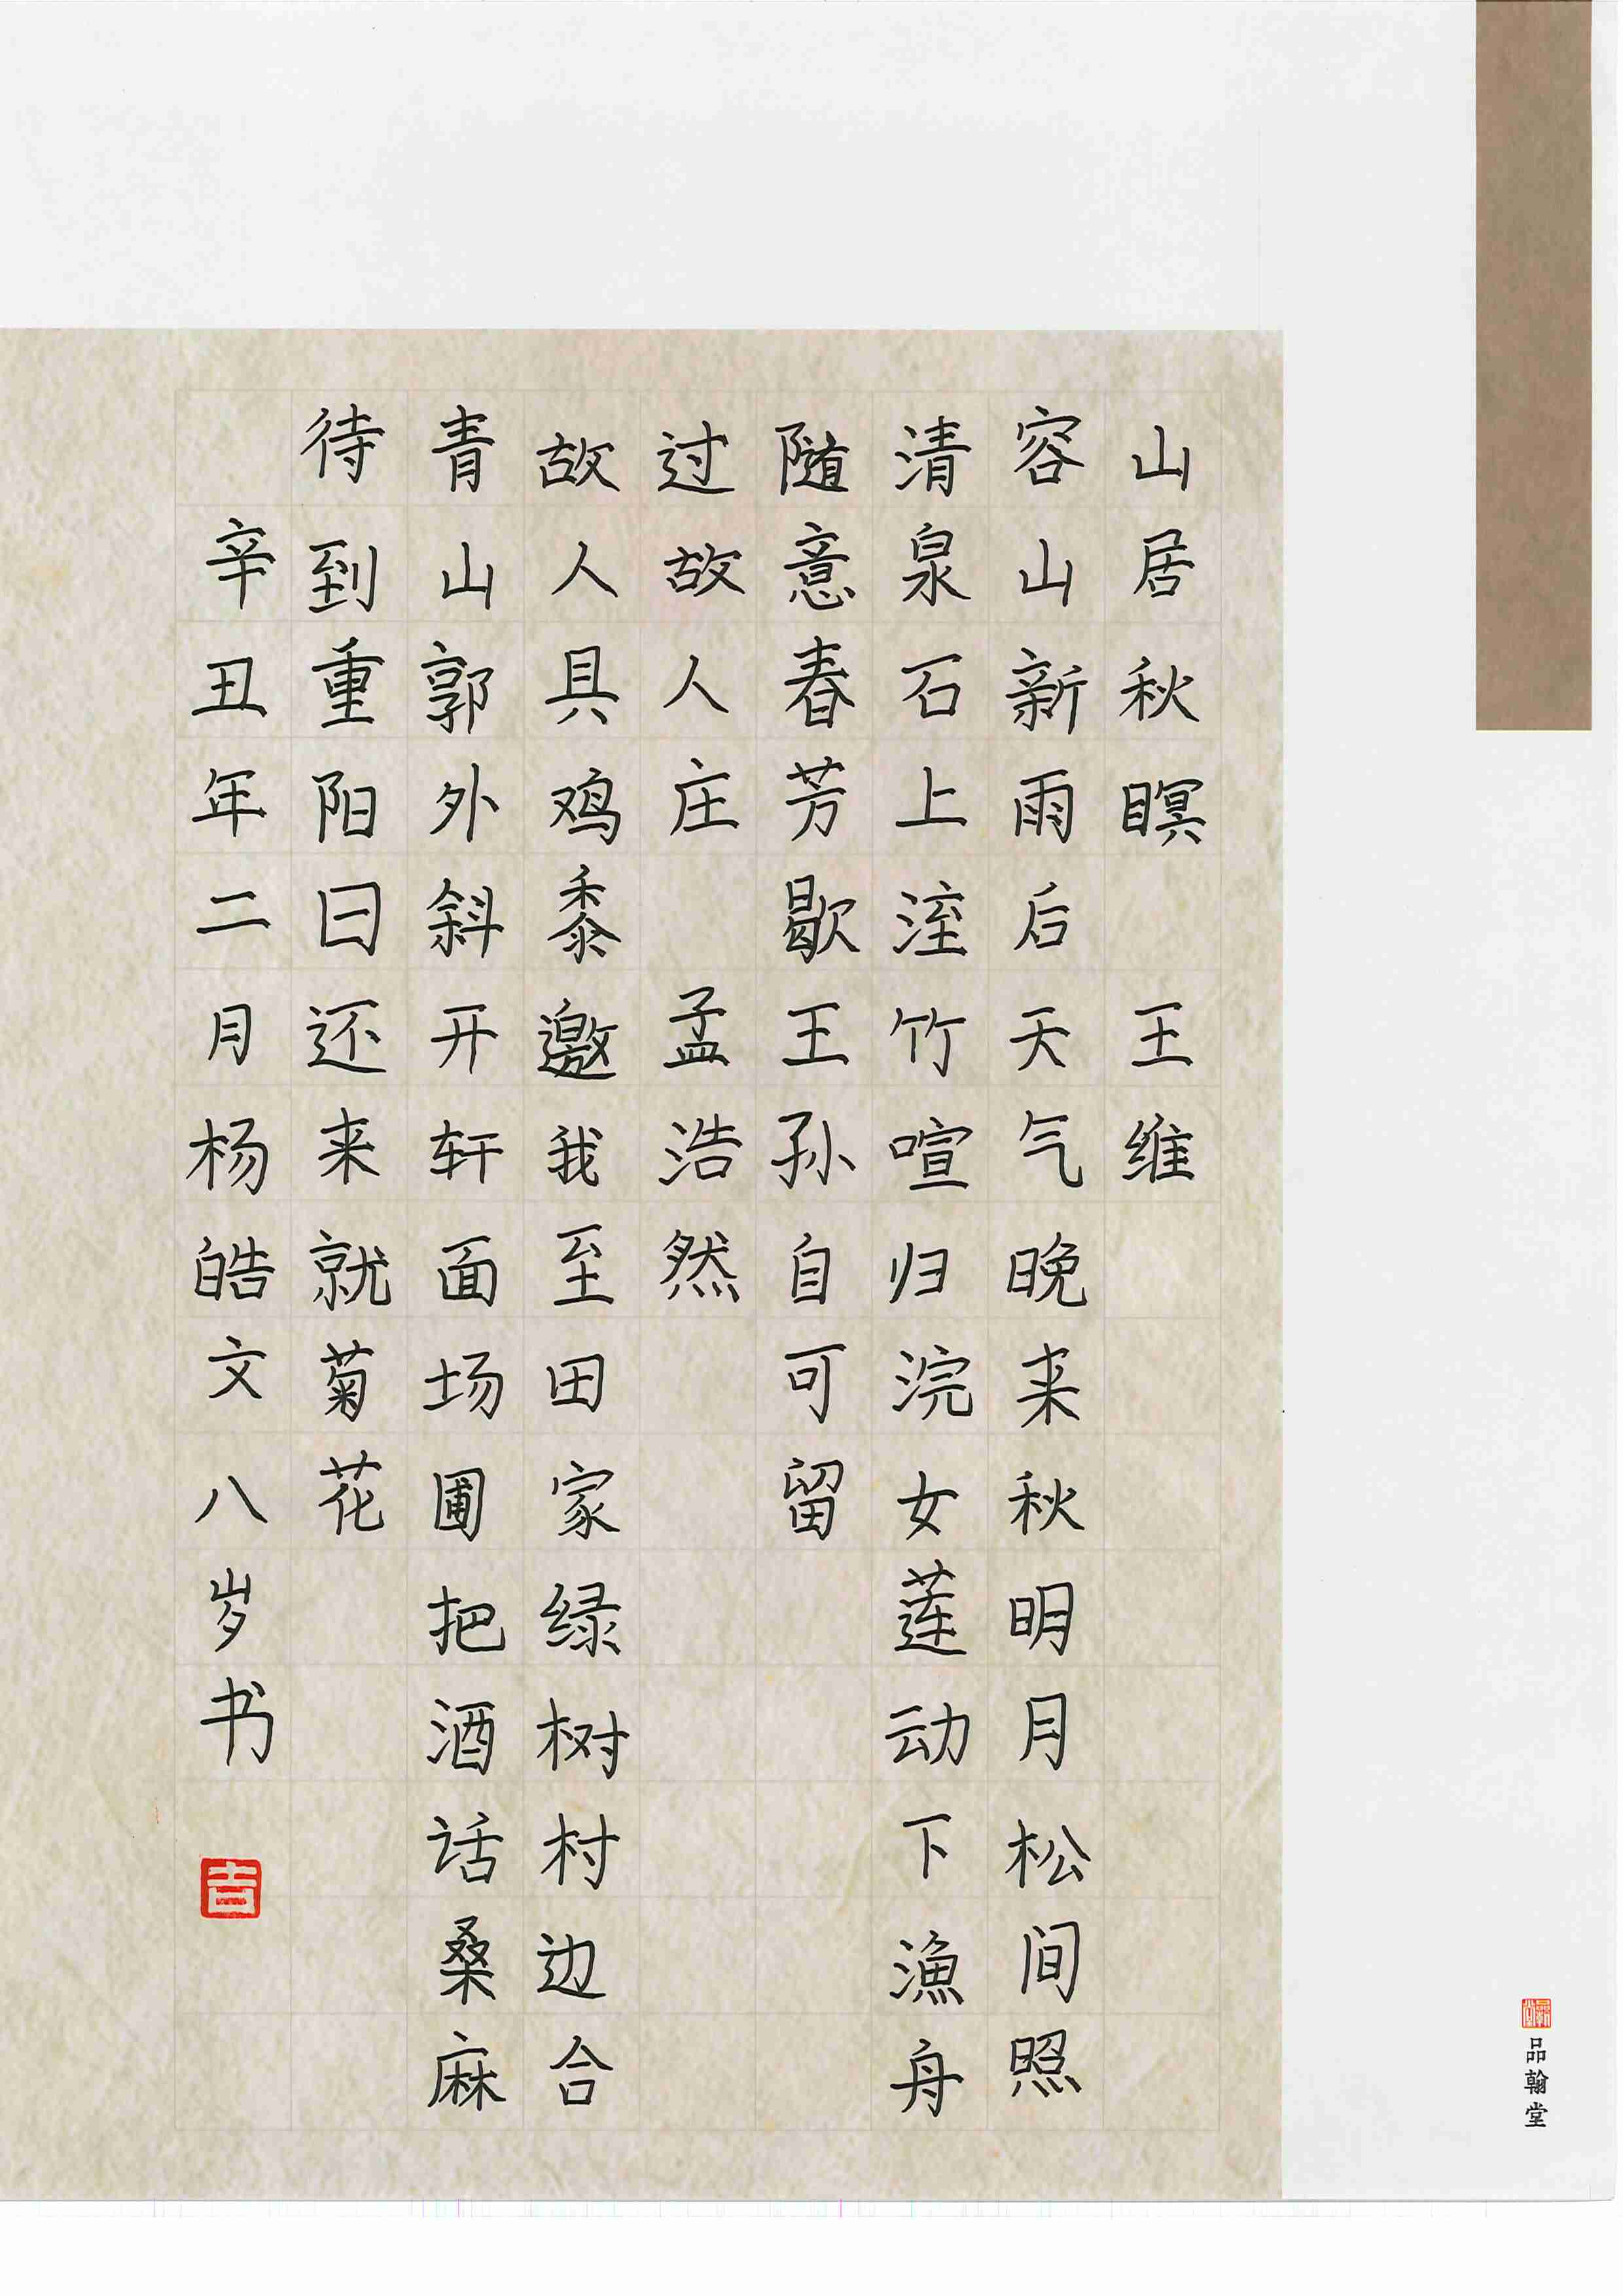 山居秋瞑 王维
容山新雨后天气晚来秋明月松间照
清泉石上洷竹喧归浣女莲动下漁舟
随意春芳歇王孙自可留
过故人庄 孟浩然
故人具鸡黍邀我至田家绿树村边合
青山郭外斜开轩面场圃把酒话桑麻
待到重阳日还来就菊花
辛丑年二月杨皓文八岁书
吉
品翰堂